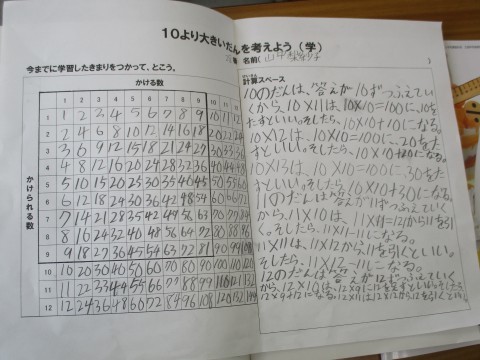 10より大きいだんを考えよう（学）
名前(
)
今までに学習したきまりをつかって、とこう。
かける数
かけられる数
1 2 3 4 5 6 7 8 9 10 11 12
1 1 2 3 4 5 6 7 8 9 10 11 12
2 2 4 6 8 10 12 14 16 18 20 22 24
3 3 6 9 12 15 18 21 24 27 30 33
4 4 8 12 16 20 24 28 32 36 40 44 48
5 5 10 15 20 25 30 35 40 45 50 55 60
6 6 12 18 24 30 36 42 48 54 60 66
7 7 14 21 28 35 42 49 56 63 70 77 84
8 8 16 24 32 40 48 56 64 72 80 88 96
9 9 18 27 36 45 54 63 72 81 90 99 108
10 10 20 30 40 50 60 70 80 90 100 110
11 11 22 33 44 55 66 77 88 99 110 121 132
12 12 24 36 48 60 72 84 96 108 120 132 144
計算スペース
10のだんは、答えが10ずつふえてい
くから、10×11は、10×10=100に、10を
たすといい。そしたら、10×10+10になる。
10×12は、10×10=100に、20をた
すといい。そしたら、10×10+20になる。
10×13は、10×10=100に、30をた
すといい。そしたら、10×10+30になる。
11のだんは答えが11ずつふえていく
から、11×10は、11×11=121から11を引
く。そしたら、11×11-11になる。
11×11は、11×12から、11を引くといい。
そしたら、11×12-11になる。
12のだんは答えが12ずつふえていく
から、12×10は、12×9に12をたすといい。そしたら
12×9+12になる。12×11は、12×12から12を引くといい。